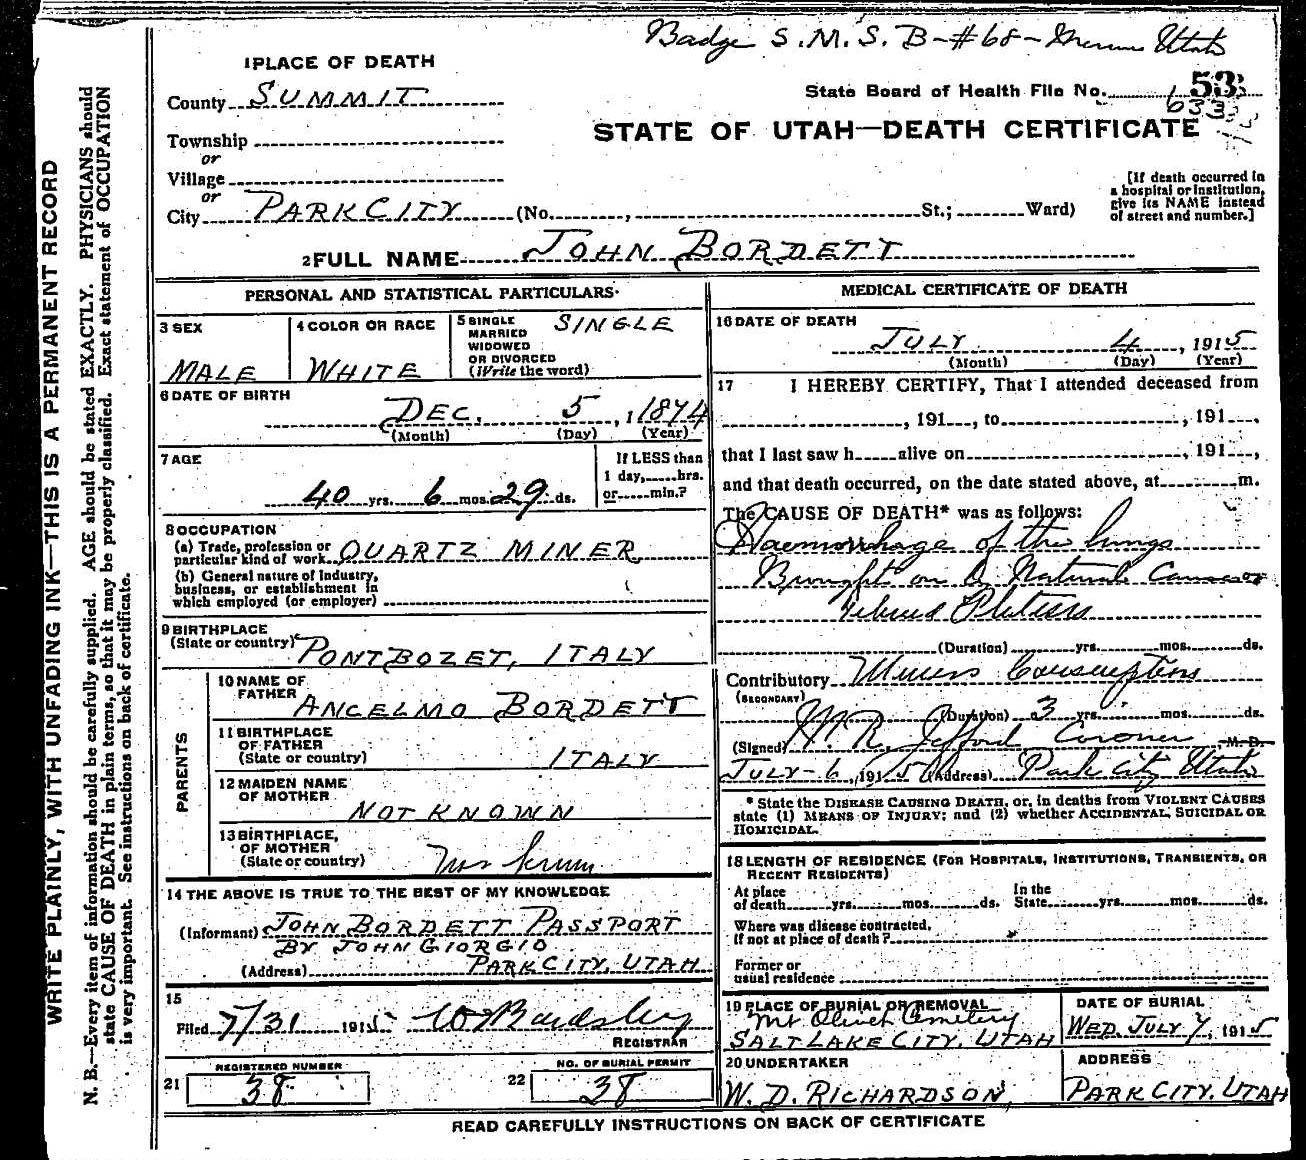 Badge S.M.S. B-#68- Utah
1 PLACE OF DEATH
County SUMMIT
State Board of Health File No. 53
633
Township
or
STATE OF UTAH—DEATH CERTIFICATE
Village
or
City PARK CITY (No. , St.; Ward)
[If death occurred in
a hospital or institution,
give its NAME instead
of street and number.]
2 FULL NAME JOHN BORDETT
PERSONAL AND STATISTICAL PARTICULARS
3 SEX
MALE
4 COLOR OR RACE
WHITE
5 SINGLE
MARRIED
WIDOWED
OR DIVORCED
(Write the word)
SINGLE
6 DATE OF BIRTH
DEC. 5, 1 1874
(Month) (Day) (Year)
7 AGE
40 yrs. 6 mos. 29 ds.
If LESS than
1 day, hrs.
or min.?
8 OCCUPATION
(a) Trade, profession or
particular kind of work QUARTZ MINER
(b) General nature of Industry,
business, or establishment in
which employed (or employer)
9 BIRTHPLACE
(State or country) PONTBOZET, ITALY
PARENTS
10 NAME OF
FATHER ANCELMO BORDETT
11 BIRTHPLACE
OF FATHER
(State or country) ITALY
12 MAIDEN NAME
OF MOTHER
NOT KNOWN
13 BIRTHPLACE,
OF MOTHER
(State or country)
14 THE ABOVE IS TRUE TO THE BEST OF MY KNOWLEDGE
(Informant) JOHN BORDETT PASSPORT
BY JOHN GIORGIO
(Address) PARK CITY, UTAH
15
Filed 7/31 1915 W Bardsley
REGISTRAR
21 REGISTERED NUMBER
38
22 NO. OF BURIAL PERMIT
38
MEDICAL CERTIFICATE OF DEATH
16 DATE OF DEATH
JULY 4, 1915
(Month) (Day) (Year)
17 I HEREBY CERTIFY, That I attended deceased from
, 191 , to , 191 ,
that I last saw h alive on , 191 ,
and that death occurred, on the date stated above, at m.
The CAUSE OF DEATH* was as follows:
Haemorrhage of the lungs
Brought on by Natural Causes or
(Duration) yrs. mos. ds.
Contributory Miners Consumption
(SECONDARY)
(Duration) 3 yrs. mos. ds.
(Signed) W. R. Jefford Coroner M. D.
JULY-6, 1915 (Address) Park City Utah
* State the DISEASE CAUSING DEATH, or, in deaths from VIOLENT CAUSES
state (1) MEANS OF INJURY; and (2) whether ACCIDENTAL, SUICIDAL OR
HOMICIDAL.
18 LENGTH OF RESIDENCE (FOR HOSPITALS, INSTITUTIONS, TRANSIENTS, OR
RECENT RESIDENTS)
At place
of death yrs. mos. ds.
In the
State yrs. mos. ds.
Where was disease contracted,
If not at place of death?
Former or
usual residence
19 PLACE OF BURIAL OR REMOVAL
Mt Olivet Cemetery
SALT LAKE CITY, UTAH
DATE OF BURIAL
WED. JULY 7, 1915
20 UNDERTAKER
W. D. RICHARDSON,
ADDRESS
PARK CITY, UTAH
READ CAREFULLY INSTRUCTIONS ON BACK OF CERTIFICATE
WRITE PLAINLY, WITH UNFADING INK—THIS IS A PERMANENT RECORD
N. B.—Every item of information should be carefully supplied. AGE should be stated EXACTLY. PHYSICIANS should
state CAUSE OF DEATH in plain terms, so that it may be properly classified. Exact statement of OCCUPATION
is very important. See instructions on back of certificate.